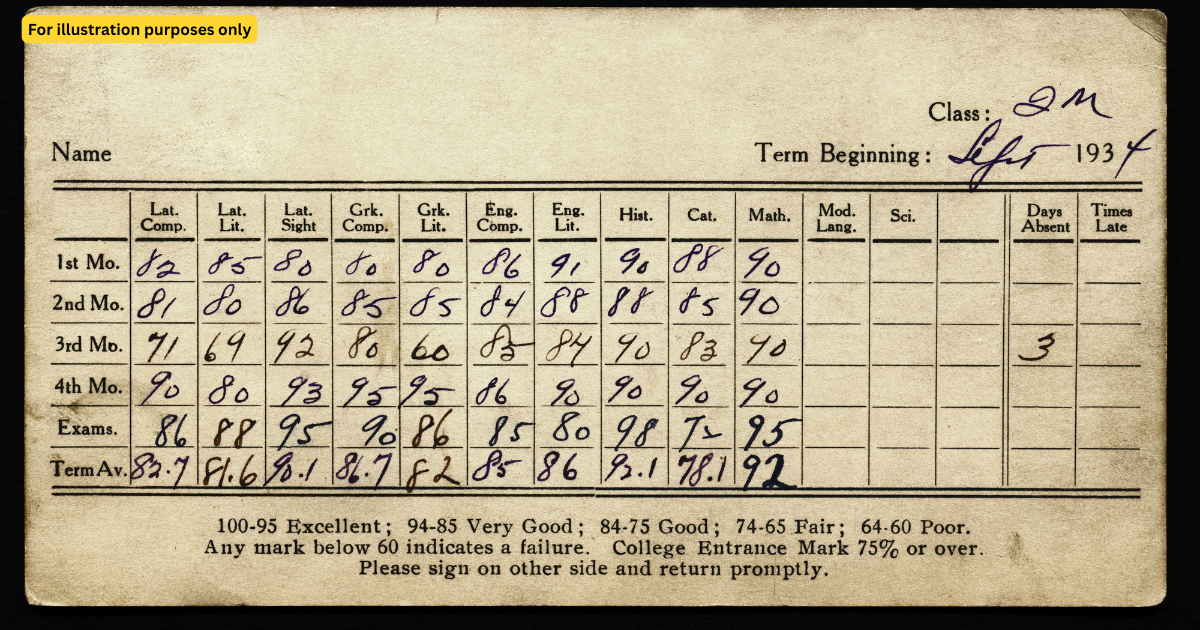 For illustration purposes only
Class: 2M
Name Term Beginning: Sept 1934
Lat. Comp. Lat. Lit. Lat. Sight Grk. Comp. Grk. Lit. Eng. Comp. Eng. Lit. Hist. Cat. Math. Mod. Lang. Sci. Days Absent Times Late
1st Mo. 82 85 80 80 80 86 91 90 88 90
2nd Mo. 81 80 86 85 85 84 88 88 85 90
3rd Mo. 71 69 92 80 60 85 84 90 83 90 3
4th Mo. 90 80 93 95 95 86 90 90 90 90
Exams. 86 88 95 90 86 85 80 98 72 95
Term Av. 82.7 81.6 90.1 86.7 82 85 86 92.1 78.1 92
100-95 Excellent; 94-85 Very Good; 84-75 Good; 74-65 Fair; 64-60 Poor.
Any mark below 60 indicates a failure. College Entrance Mark 75% or over.
Please sign on other side and return promptly.